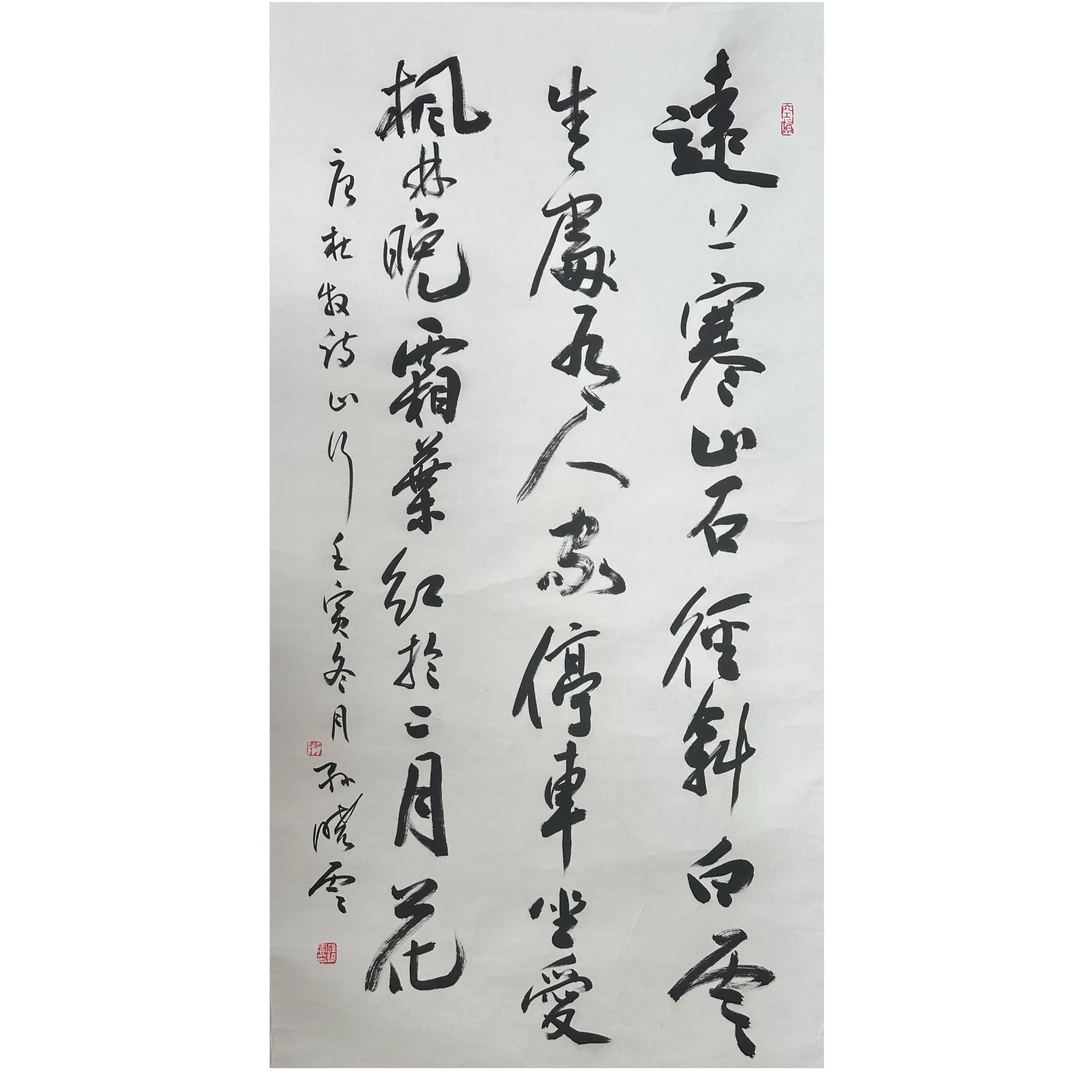 遠上寒山石徑斜白雲
生處有人家停車坐愛
楓林晚霜葉紅於二月花
唐杜牧詩山行壬寅冬月孫曉雲